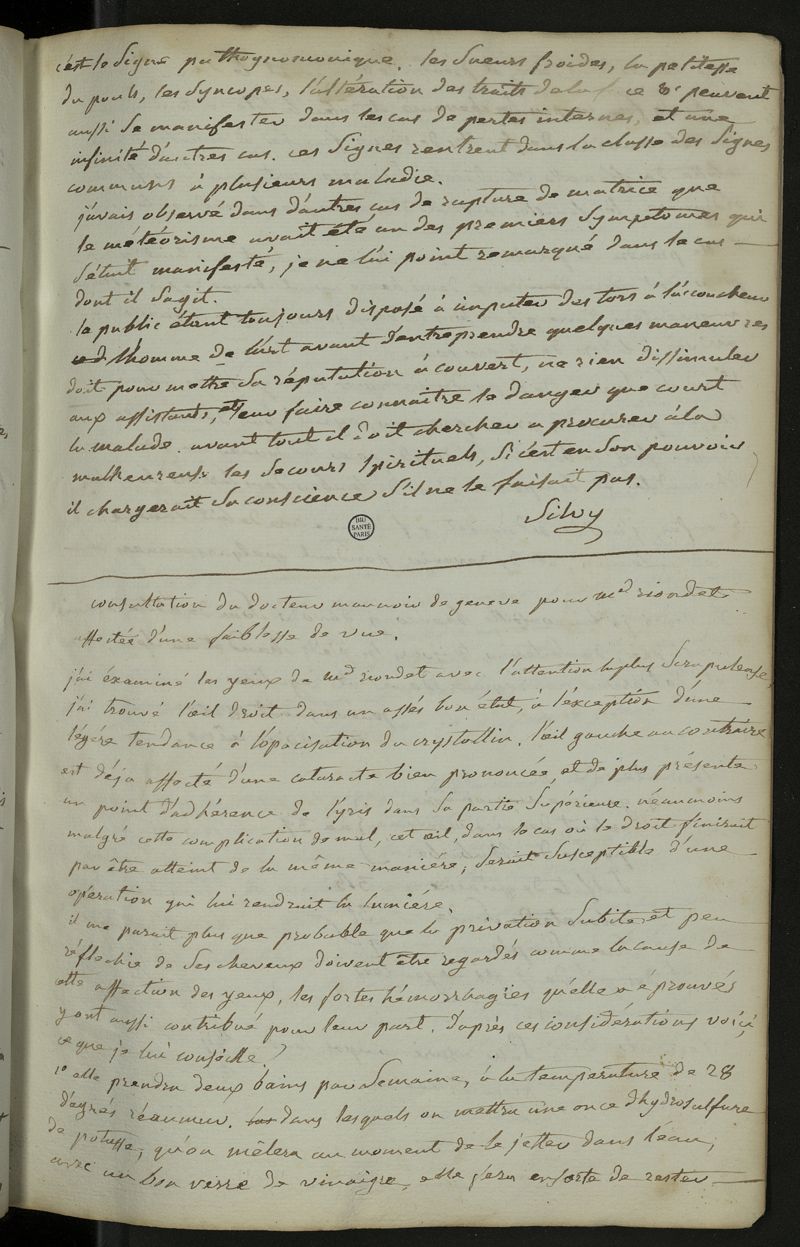 c'est le signe pathognomonique. les sueurs froides, la petitesse
du pouls, les syncopes, l'altération des traits de la face &c peuvent
aussi se manifester dans les cas de pertes internes, et une
infinité d'autres cas. ces signes rentrent dans la classe des signes
communs à plusieurs maladie.
j'avais observé dans d'autres cas de rupture de matrice que
le météorisme avait été un des premiers symptomes qui
s'était manifesté, je ne l'ai point remarqué dans le cas
dont il sagit.
le public étant toujours disposé à imputer des tors à l'accoucheur
l'homme de l'art avant d'entreprendre quelques manœuvres
doit pour mettre sa réputation à couvert, ne rien dissimuler
aux assistants, et leur faire connaitre le danger que court
la malade. avant tout il doit chercher a procurer à la
malheureuse les secours spirituels, si c'est en son pouvoir
il chargerait sa conscience s'il ne le faisait pas.
Silvy
BIU
SANTÉ
PARIS
consultation du docteur maunoir de geneve pour md riondet
affectée d'une faiblesse de vue.
j'ai éxaminé les yeux de md riondet avec l'attention la plus scrupuleuse,
j'ai trouvé l'œil droit dans un assés bon état, à l'éxception d'une
légére tendance à l'opacisation du crystallin. l'œil gauche au contraire
est déja affecté d'une cataracte bien prononcée, et de plus présente
un point d'adhérence de l'yris dans sa partie supérieure. néaumoins
malgré cette complication de mal, cet œil, dans le cas où le droit finirait
par être atteint de la même maniére, serait susceptible d'une
opération qui lui rendrait la lumiére.
il me parait plus que probable que la privation subite et peu
réfléchie de ses cheveux doivent être regardés comme la cause de
cette affection des yeux, les fortes hémorrhagies qu'elle a éprouvés
y ont aussi contribué pour leur part. d'après ces considérations voici
ce que je lui conseille.
1° elle prendra deux bains par semaine, à la température de 28
dégrés réaumur. dans lesquels on mettra une once d'hydrosulfure
de potasse, qu'on mêlera au moment de le jetter dans l'eau,
avec un bon verre de vinaigre, elle fera ensorte de rester